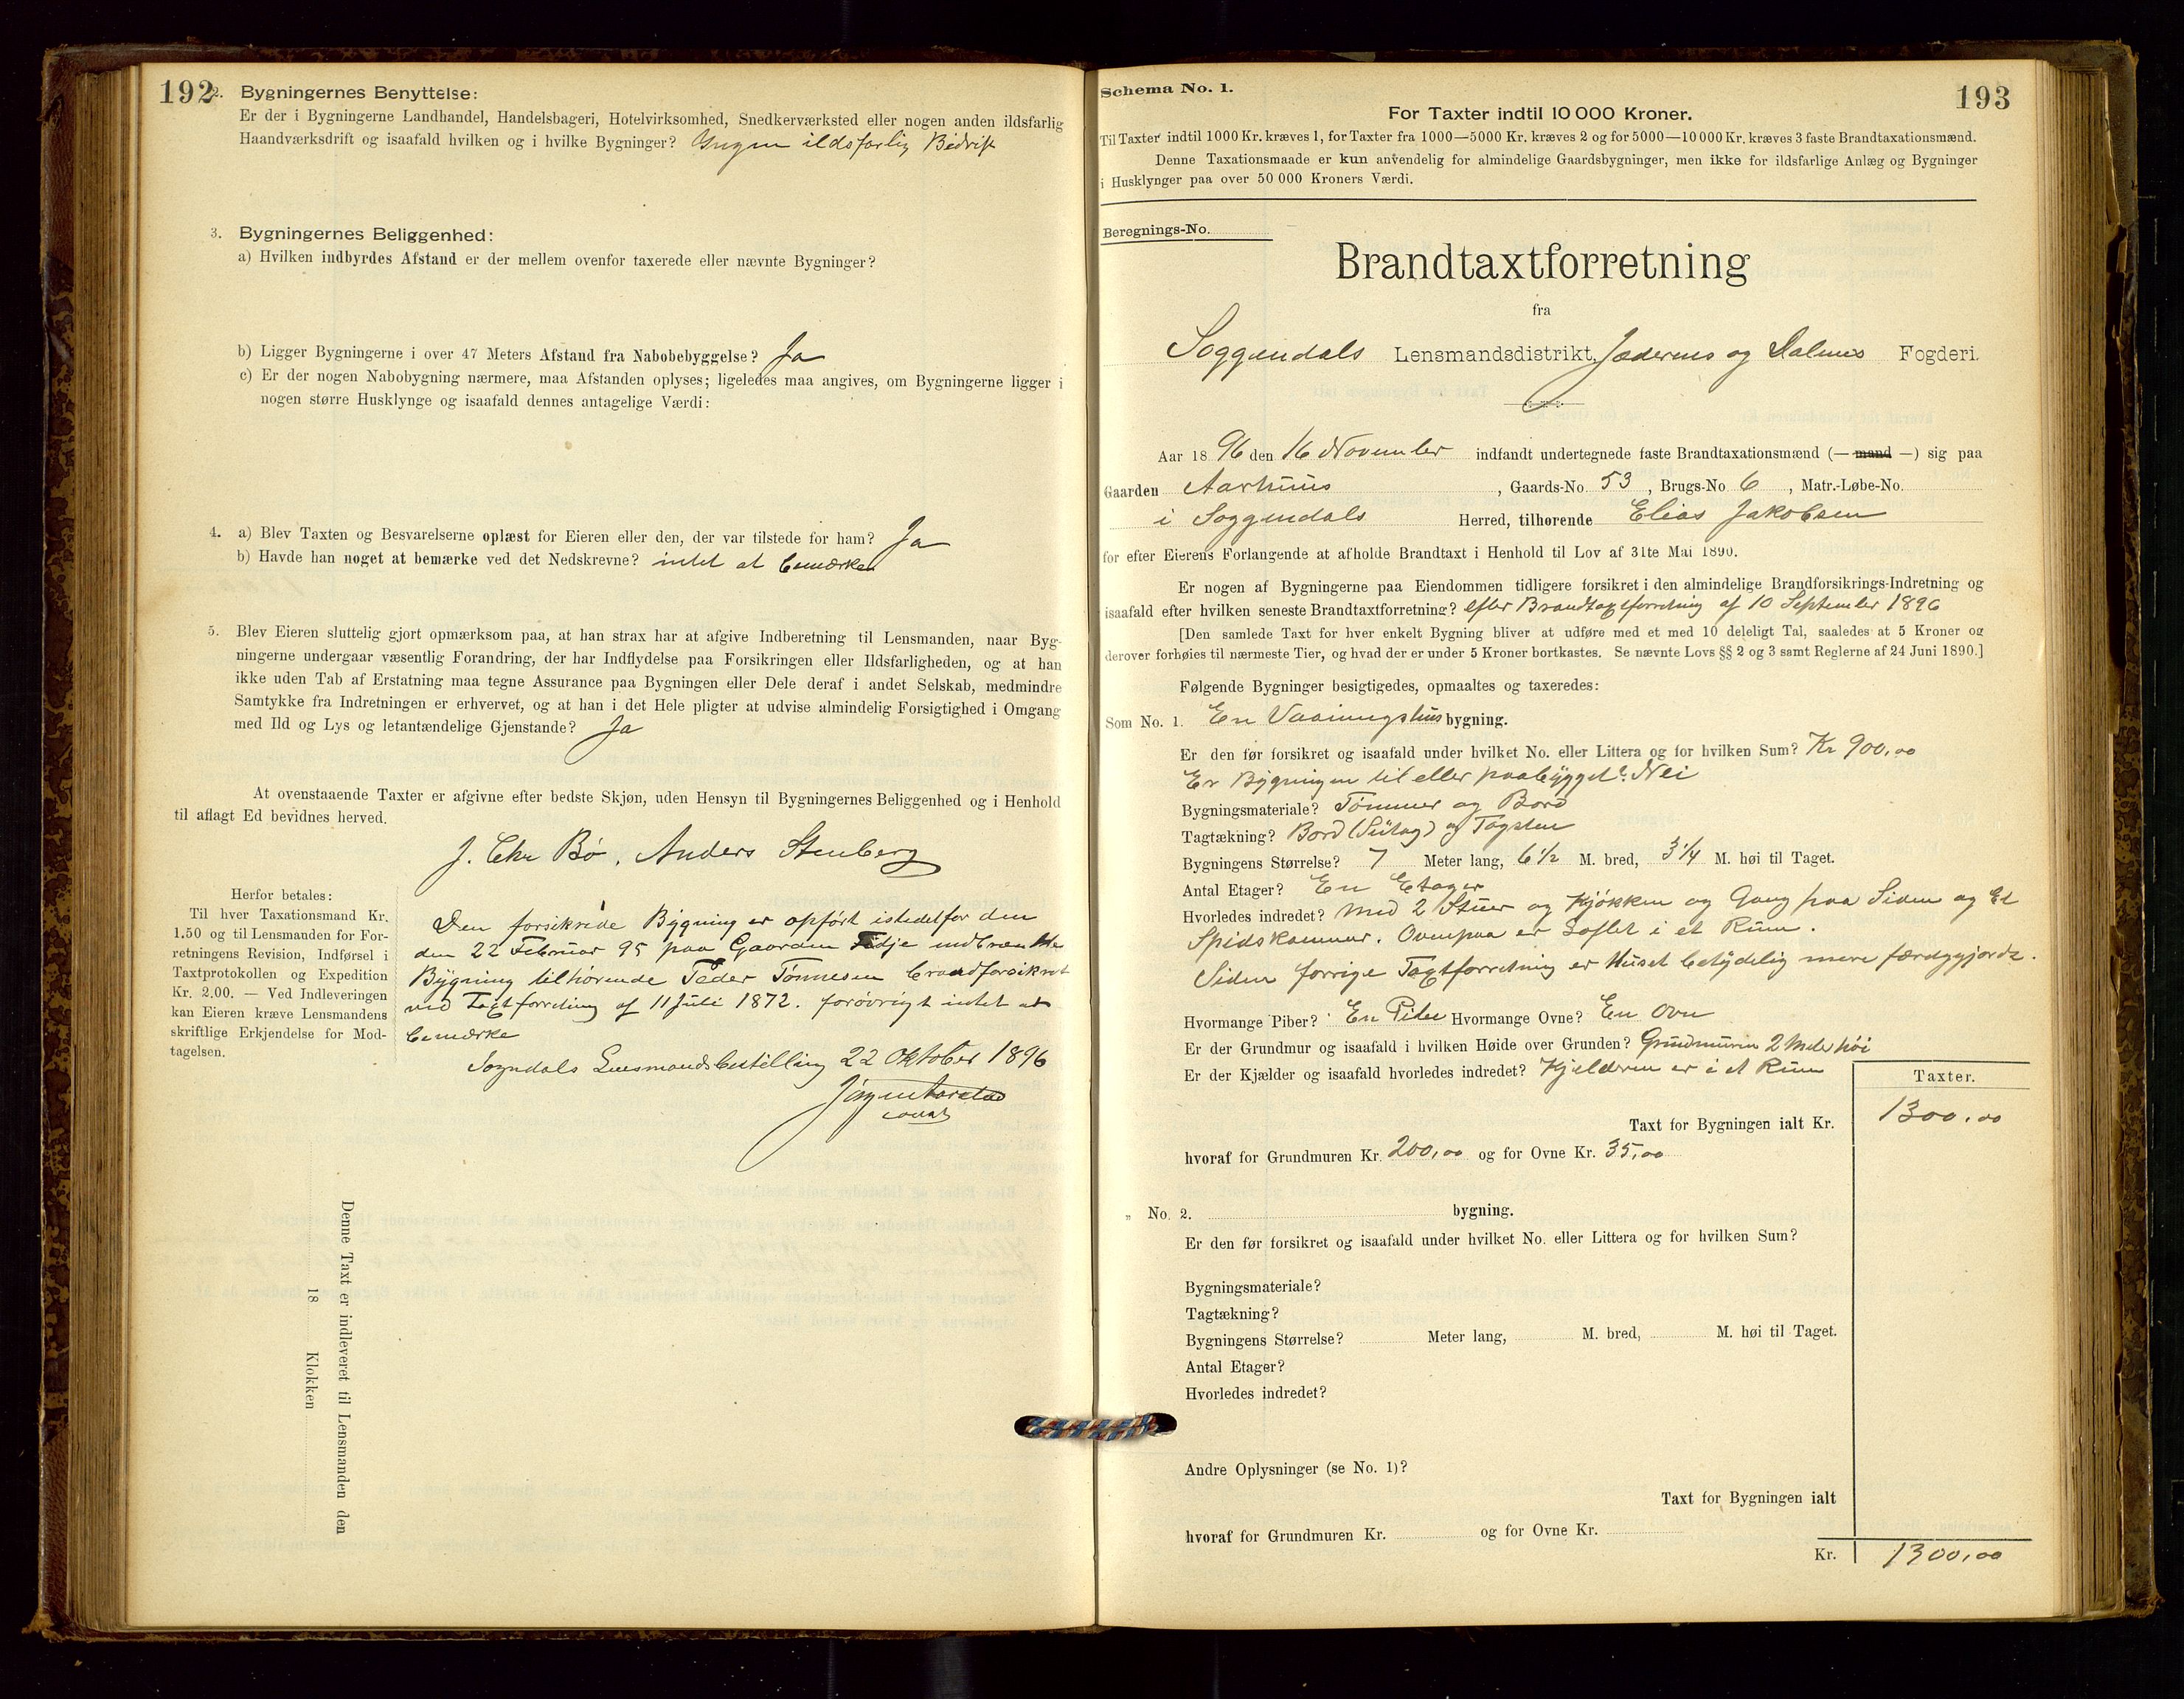 192
2. Bygningernes Benyttelse:
Er der i Bygningerne Landhandel, Handelsbageri, Hotelvirksomhed, Snedkerværksted eller nogen anden ildsfarlig
Haandværksdrift og isaafald hvilken og i hvilke Bygninger? Ingen ildsfarlig Bedrift
3. Bygningernes Beliggenhed:
a) Hvilken indbyrdes Afstand er der mellem ovenfor taxerede eller nævnte Bygninger?
b) Ligger Bygningerne i over 47 Meters Afstand fra Nabobebyggelse? Ja
c) Er der nogen Nabobygning nærmere, maa Afstanden oplyses; ligeledes maa angives, om Bygningerne ligger i
nogen større Husklynge og isaafald dennes antagelige Værdi:
4. a) Blev Taxten og Besvarelserne oplæst for Eieren eller den, der var tilstede for ham? Ja
b) Havde han noget at bemærke ved det Nedskrevne? intet at bemærke
5. Blev Eieren sluttelig gjort opmærksom paa, at han strax har at afgive Indberetning til Lensmanden, naar Byg-
ningerne undergaar væsentlig Forandring, der har Indflydelse paa Forsikringen eller Ildsfarligheden, og at han
ikke uden Tab af Erstatning maa tegne Assurance paa Bygningen eller Dele deraf i andet Selskab, medmindre
Samtykke fra Indretningen er erhvervet, og at han i det Hele pligter at udvise almindelig Forsigtighed i Omgang
med Ild og Lys og letantændelige Gjenstande? Ja
At ovenstaaende Taxter er afgivne efter bedste Skjøn, uden Hensyn til Bygningernes Beliggenhed og i Henhold
til aflagt Ed bevidnes herved.
J. Chr Bø. Anders Stenberg
Herfor betales:
Til hver Taxationsmand Kr.
1.50 og til Lensmanden for For-
retningens Revision, Indførsel i
Taxtprotokollen og Expedition
Kr. 2,00. — Ved Indleveringen
kan Eieren kræve Lensmandens
skriftlige Erkjendelse for Mod-
tagelsen.
Den forsikrede Bygning er opført istedetfor den
den 22 Februar 95 paa Gaarden Fidje nedbrændte
Bygning tilhørende Peder Tønnesen brandforsikret
ved Taxtforretning af 11 Juli 1872. forøvrigt intet at
bemærke
Sogndals Lensmandsbestilling 22 Oktober 1896
Jørgen Aarstad
const
Denne Taxt er indleveret til Lensmanden den
18 Klokken
193
Schema No. 1.
For Taxter indtil 10 000 Kroner.
Til Taxter indtil 1000 Kr. kræves 1, for Taxter fra 1000—5000 Kr. kræves 2 og for 5000—10 000 Kr. kræves 3 faste Brandtaxationsmænd.
Denne Taxationsmaade er kun anvendelig for almindelige Gaardsbygninger, men ikke for ildsfarlige Anlæg og Bygninger
i Husklynger paa over 50 000 Kroners Værdi.
Beregnings-No.
Brandtaxtforretning
fra
Soggendals Lensmandsdistrikt, Jæderens og Dalenes Fogderi.
Aar 1896 den 16 November indfandt undertegnede faste Brandtaxationsmænd (— mand —) sig paa
Gaarden Aarhuus, Gaards-No. 53, Brugs-No. 6, Matr.-Løbe-No.
i Soggendals Herred, tilhørende Elias Jakobsen
for efter Eierens Forlangende at afholde Brandtaxt i Henhold til Lov af 31te Mai 1890.
Er nogen af Bygningerne paa Eiendommen tidligere forsikret i den almindelige Brandforsikrings-Indretning og
isaafald efter hvilken seneste Brandtaxtforretning? efter Brandtaxtforretning af 10 September 1896
[Den samlede Taxt for hver enkelt Bygning bliver at udføre med et med 10 deleligt Tal, saaledes at 5 Kroner og
derover forhøies til nærmeste Tier, og hvad der er under 5 Kroner bortkastes. Se nævnte Lovs §§ 2 og 3 samt Reglerne af 24 Juni 1890.]
Følgende Bygninger besigtigedes, opmaaltes og taxeredes:
Som No. 1. En Vaaningshus bygning.
Er den før forsikret og isaafald under hvilket No. eller Littera og for hvilken Sum? Kr 900,00
Er Bygningen til eller paabygget? Nei
Bygningsmateriale? Tømmer og Bord
Tagtækning? Bord (Sutag) og Tagsten
Bygningens Størrelse? 7 Meter lang, 6 1/2 M. bred, 3 1/4 M. høi til Taget.
Antal Etager? En Etager
Hvorledes indredet? med 2 Stuer og Kjøkken og Gang paa Siden og Et
Spidskammer. Ovenpaa er Loftet i et Rum.
Siden forrige Taxtforretning er Huset betydelig mere færdiggjorde.
Hvormange Piber? En Pibe Hvormange Ovne? En Ovn
Er der Grundmur og isaafald i hvilken Høide over Grunden? Grundmuren 2 Meter høi
Er der Kjælder og isaafald hvorledes indredet? Kjelderen er i et Rum
Taxter.
Taxt for Bygningen ialt Kr. 1300,00
hvoraf for Grundmuren Kr. 200,00 og for Ovne Kr. 35,00
„ No. 2. bygning.
Er den før forsikret og isaafald under hvilket No. eller Littera og for hvilken Sum?
Bygningsmateriale?
Tagtækning?
Bygningens Størrelse? Meter lang, M. bred, M. høi til Taget.
Antal Etager?
Hvorledes indredet?
Andre Oplysninger (se No. 1)?
Taxt for Bygningen ialt
hvoraf for Grundmuren Kr. og for Ovne Kr.
Kr. 1300,00